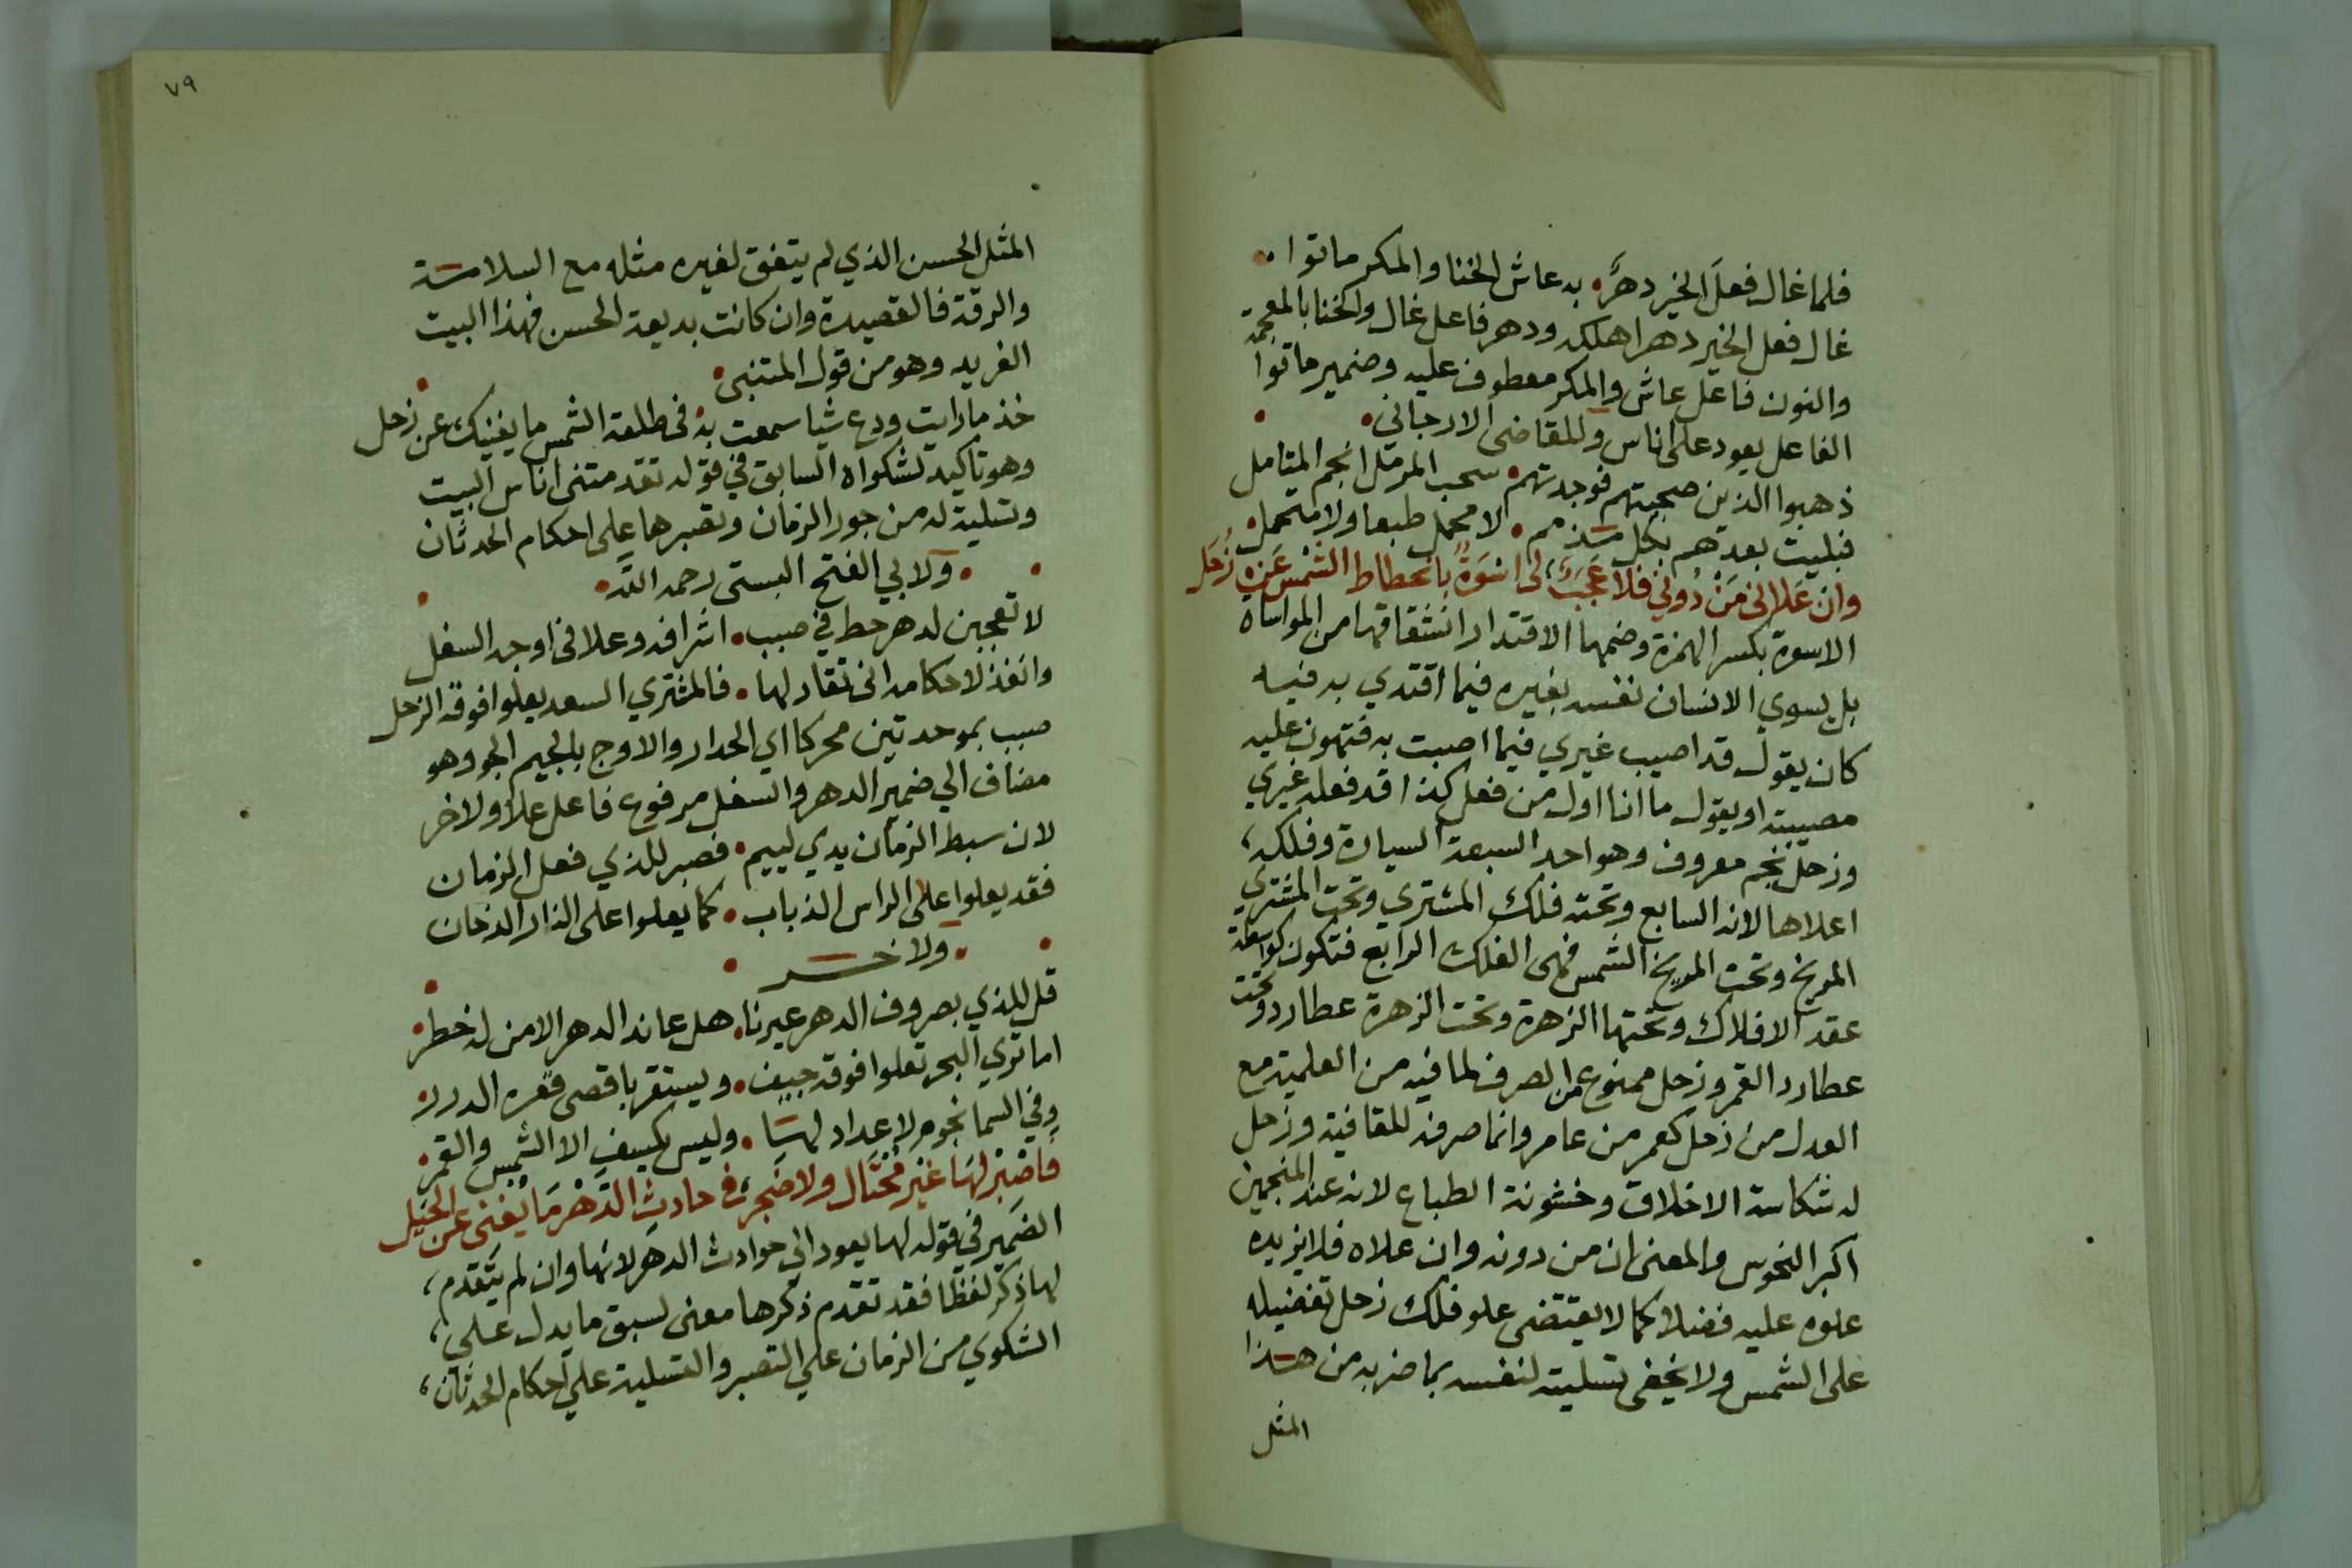 فلما غال فعل الخير دهر به عاش الخنا والمكر ماتوا
غال فعل الخير دهر اهلكه ودهر فاعل غال والخنا بالمعجمة
والنون فاعل عاش والمكر معطوف عليه وضمير ماتوا
الفاعل يعود على اناس وللقاضى الارجاني
ذهبوا الذين صحبتهم فوجدتهم سحب المرمل انجم المتامل
فبليت بعدهم بكل مذمم لا محمل طبعا ولا متحمل
وان علانى من دوني فلا عجب لى اسوة بانحطاط الشمس عن زحل
الاسوة بكسر الهمزة وضمها الاقتدار اشتقاقها من المواساة
بل يسوي الانسان نفسه بغيره فيما اقتدي به فيه
كان يقول قد اصيب غيري فيما اصبت به فتهون عليه
مصيبته او يقول ما انا اول من فعل كذا قد فعله غيري
وزحل نجم معروف وهو احد السبعة السيارة وفلكه
اعلاها لانه السابع وتحته فلك المشتري وتحت المشتري
المريخ وتحت المريخ الشمس فهى الفلك الرابع فتكون كواسطة
عقد الافلاك وتحتها الزهرة وتحت الزهرة عطارد وتحت
عطارد القمر وزحل ممنوع من الصرف لما فيه من العلمية مع
العدل من زحل كعمر من عامر وانما صرفه للقافية وزحل
له شكاسة الاخلاق وخشونة الطباع لانه عند المنجمين
اكبر النحوس والمعنى ان من دونه وان علاه فلا يزيده
علوه عليه فضلا كما لا يقتضى علو فلك زحل تفضيله
على الشمس ولا يخفى تسليته لنفسه بما ضربه من هذا
المثل
٧٩
المثل الحسن الذي لم يتفق لغيره مثله مع السلاسة
والرقة فالقصيدة وان كانت بديعة الحسن فهذا البيت
الفريد وهو من قول المتنبى
خذ ما رايت ودع شيا سمعت به فى طلعة الشمس ما يغنيك عن زحل
وهو تاكيد لشكواه السابق في قوله تقدمتنى اناس البيت
وتسلية له من جور الزمان وتصبرها على احكام الحدثان
ولابي الفتح البستى رحمه الله
لا تعجبن لدهر حط في صبب اشرافه وعلا فى اوجه السفل
وانفذ لاحكامه انى تقاد لها فالمشتري السعد يعلوا فوقه الزحل
صبب بموحدتين محركا اي الحدار والاوج بالجيم الجو وهو
مضاف الي ضمير الدهر والسفل مرفوع فاعل علا ولاخر
لان سبط الزمان يدي لييم فصبر للذي فعل الزمان
فقد يعلوا على الراس الذباب كما يعلوا على النار الدخان
ولاخر
قل للذي بصروف الدهر عيرنا هل عاند الدهر الا من له خطر
اما تري البحر تعلوا فوقه جيف ويستقر باقصى قعره الدرر
وفي السما نجوم لا عداد لها وليس يكسف الا الشمس والقمر
فاصبر لها غير محتال ولا ضجر فى حادث الدهر ما يغنى عن الحيل
الضمير في قوله لها يعود الي حوادث الدهر لانها وان لم يتقدم
لها ذكر لفظا فقد تقدم ذكرها معنى لسبق ما يدل على
الشكوي من الزمان علي التصبر والتسلية علي احكام الحدثان